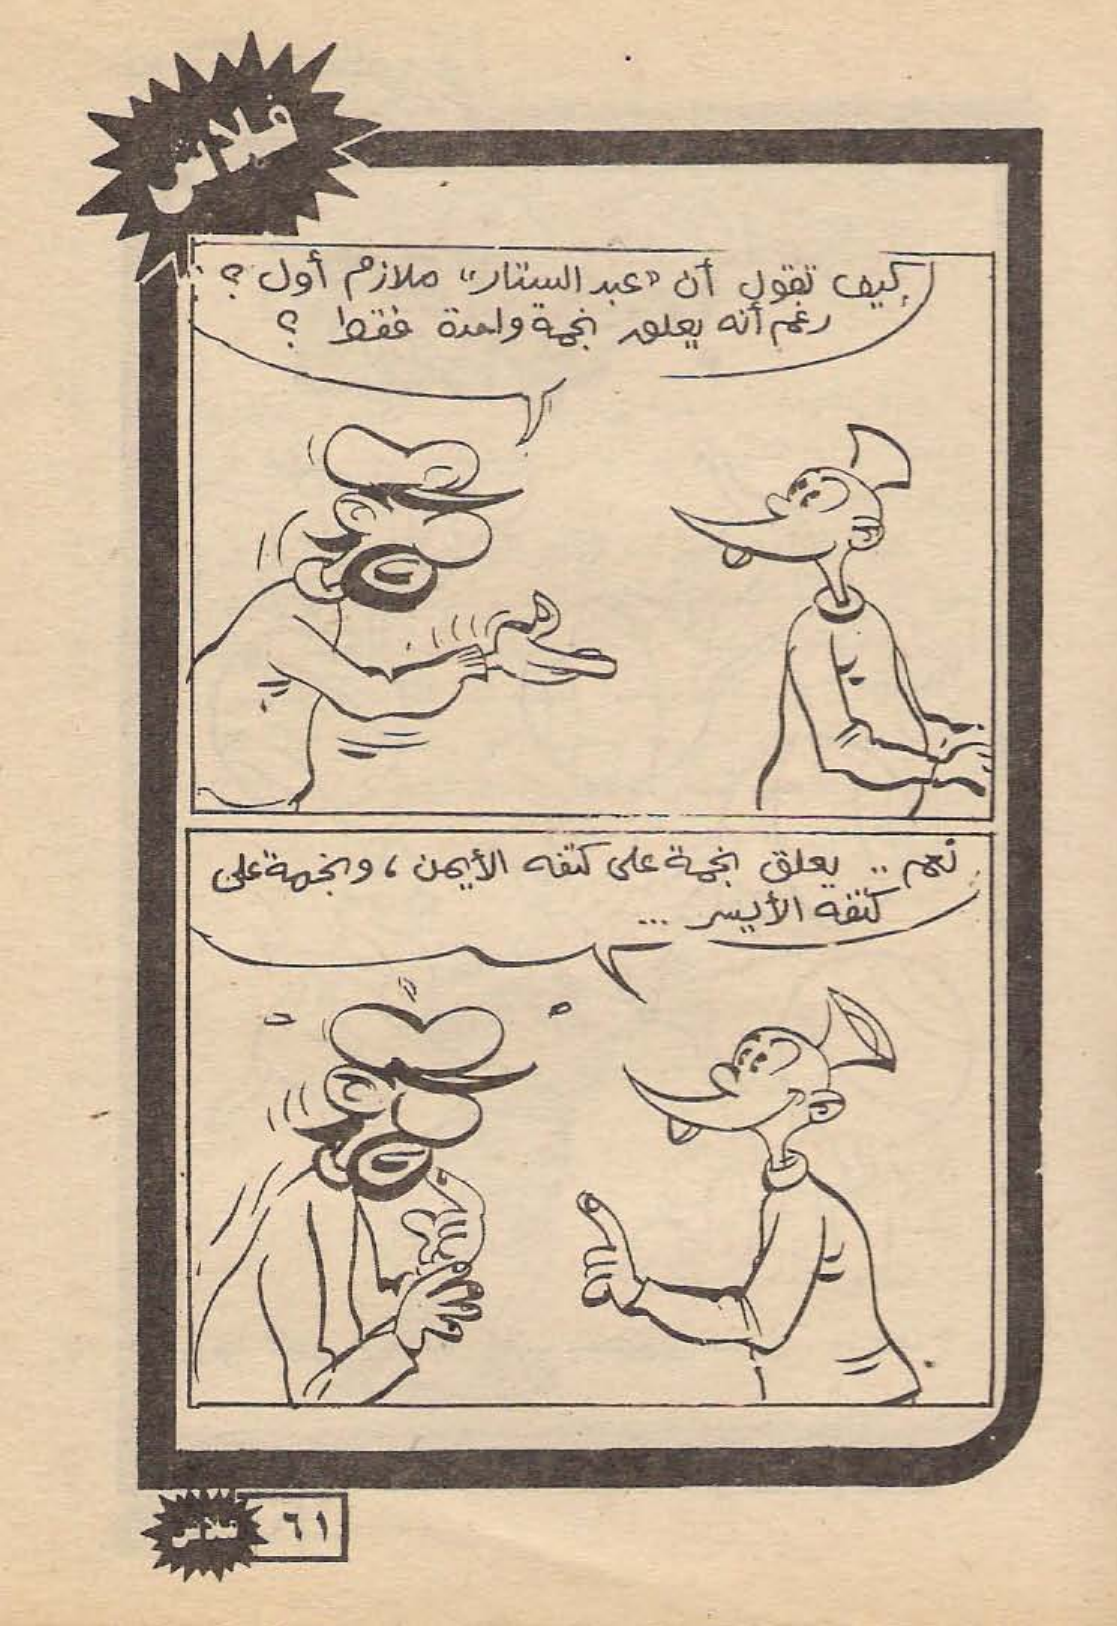 فلاش
كيف تقول أن "عبد الستار" ملازم أول ؟
رغم أنه يعلق نجمة واحدة فقط ؟
نعم .. يعلق نجمة على كتفه الأيمن ، ونجمة على
كتفه الأيسر ...
فلاش
٦١